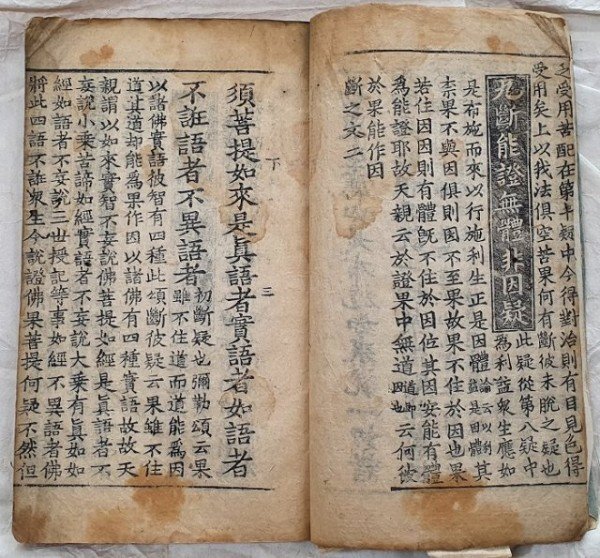 乏受用苦配在第十類中今得對治則有目見色得
受用矣上以我法俱空苦果何有斷彼未脫之疑也
九斷能證無體非因疑
此疑從第八疑中
為利益衆生應如
是布施而來以行施利生正是因體論云以益是因體其
果不與因俱則因不至果故果不住於因也果
若住因因則有體旣不住於因位其因安能有體
為能證耶故天親云於證果中無道道即因也云何彼
於果能作因
斷之文二
下 三
須菩提如來是眞語者實語者如語者
不誑語者不異語者初斷疑也彌勒頌云果
雖不住道而道能為因
以諸佛實語彼智有四種此頌斷彼疑云果雖不住
道此道却能為果作因以諸佛有四種實語故故天
親謂以如來實智不妄說佛菩提如經是眞語者不
妄說小乘苦諦如經實語者不妄說大乘有眞如如
經如語者不妄說三世授記等事如經不異語者佛
將此四語不誑衆生今說證佛果菩提何疑不然但